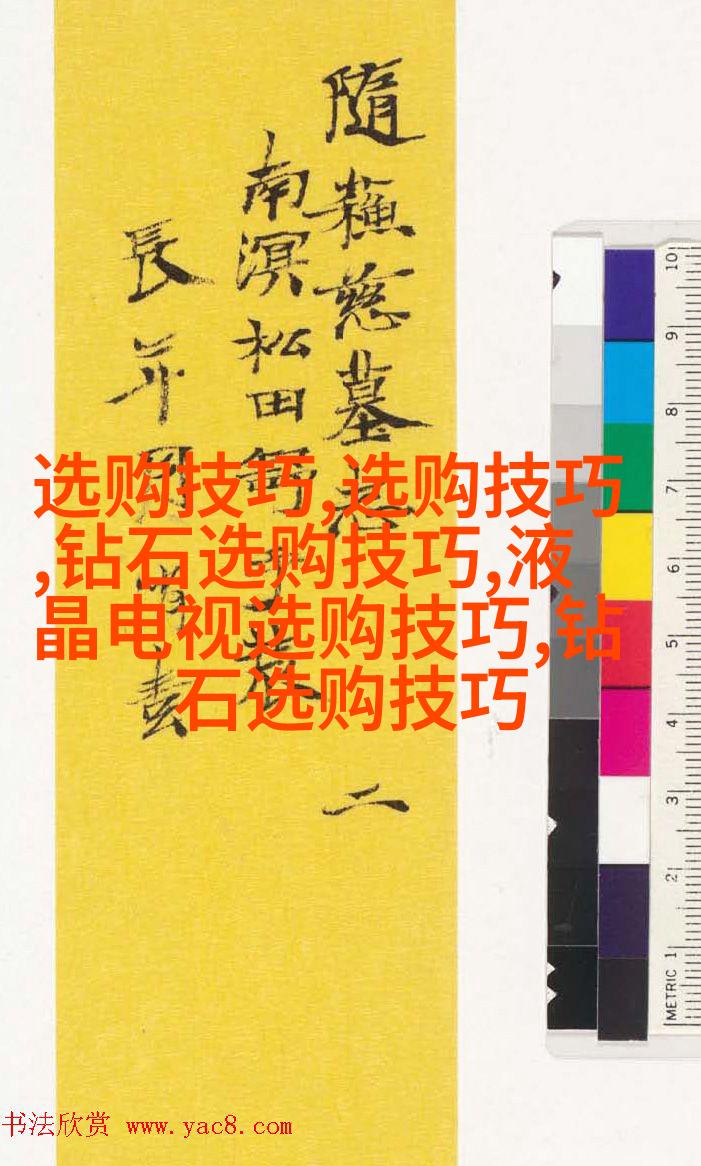 隨蘓慈墓志 二
南溟松田
長
选购技巧,选购技巧
,钻石选购技巧,液
晶电视选购技巧,钻
石选购技巧
10
9
8
7
6
5
4
3
2
METRIC 1
书法欣赏 www.yac8.com